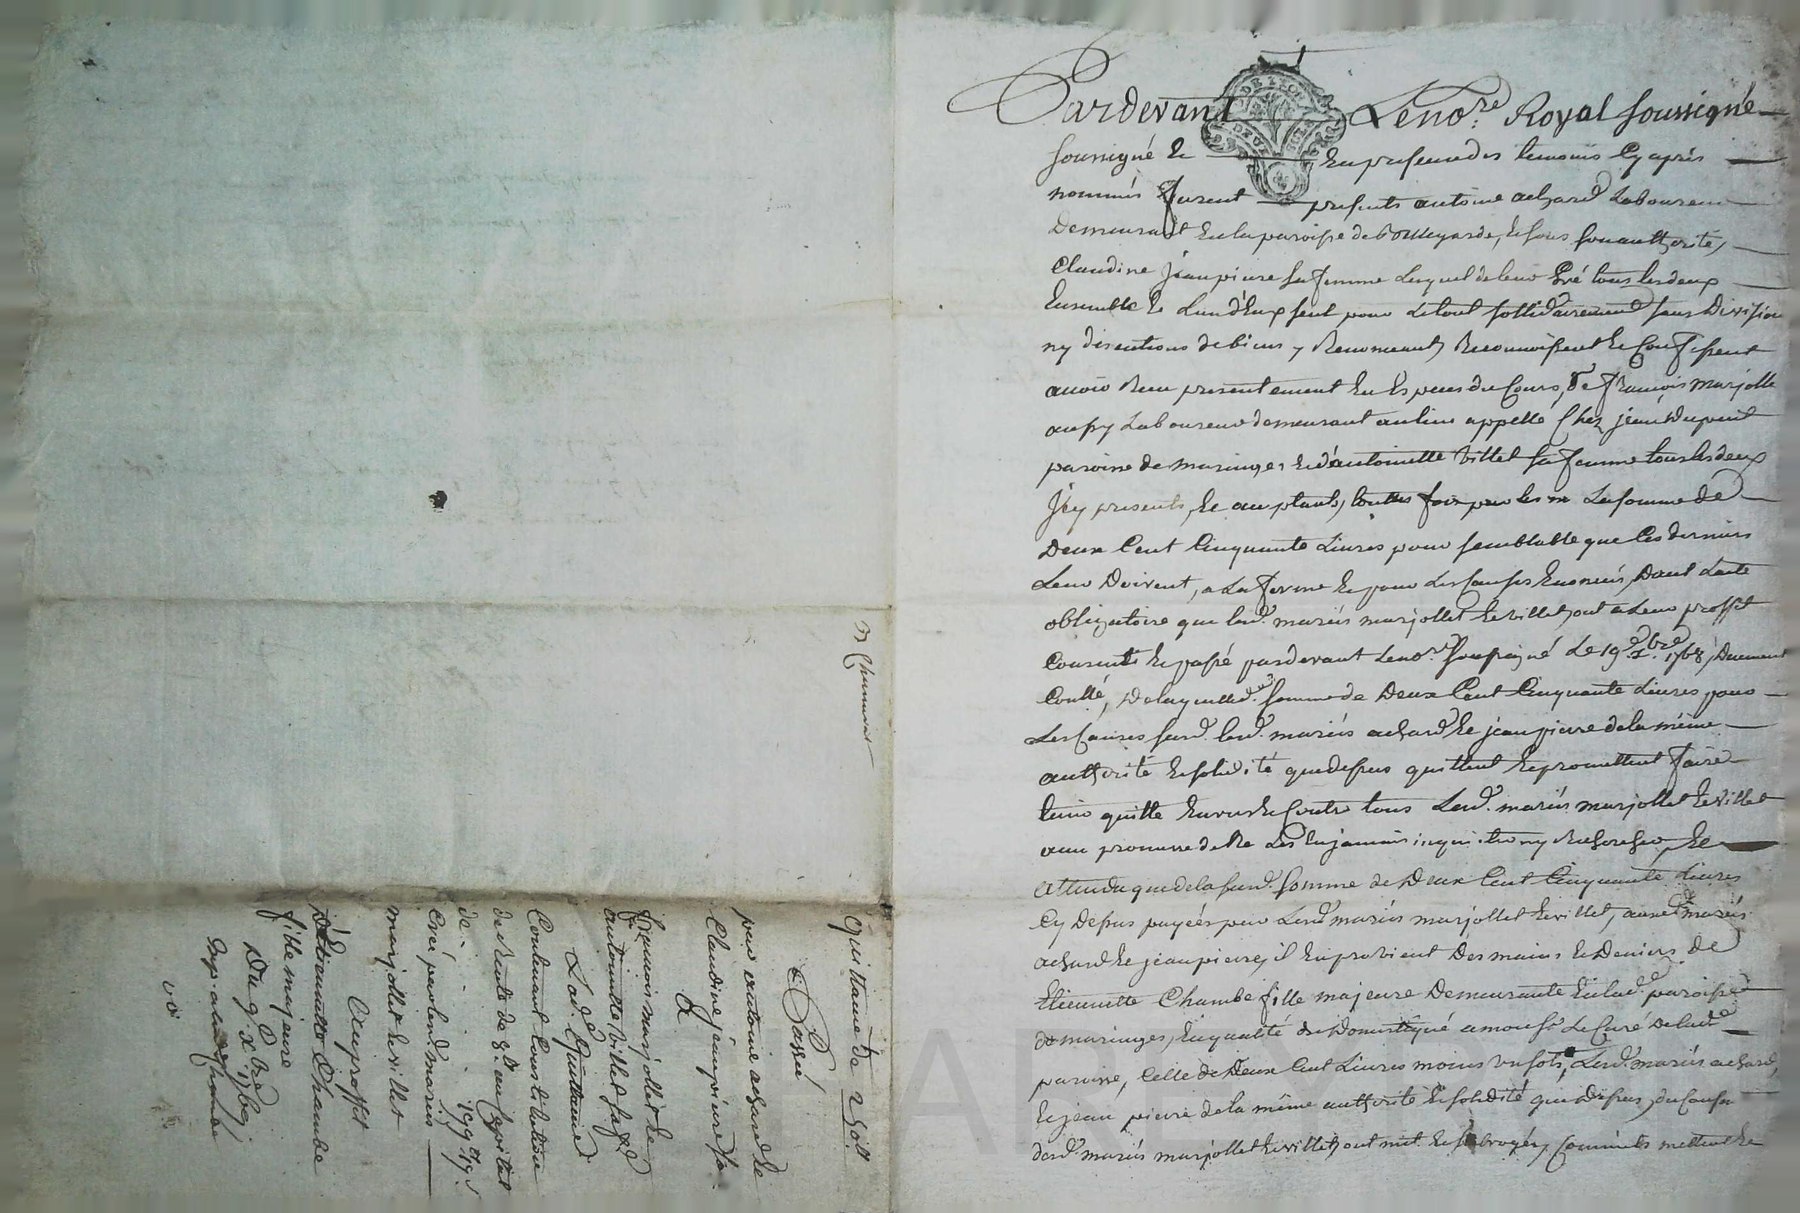 Pardevant Le no.re Royal soussigné
soussigné Et En presence des temoins Cy après
nommés furent presents antoine achard Laboureur
Demeurant En la paroisse de et sous son authorité,
Claudine jeanpierre sa femme Lesquels de leur Gré tous les deux
Ensemble Et L'un d'Eux seul pour Le tout sollidairement sans Division
ny discutions de biens y Renonceant, Reconnoissent Et Confessent
avoir Reçu presentement En Especes du Cours, de françois marjollet
aussy Laboureur demeurant au lieu appellé Chez jean Dupuit
paroisse de maringes Et d'antoinette Villet sa femme tous les deux
Icy presents, Et acceptants, La somme de
Deux Cent Cinquante Livres pour semblable que Ces derniers
Leur Doivent, a La forme Et pour Les Causes Enoncées, Dant L'acte
obligatoire que lesd. mariés marjollet Et villet, ont a Leur proffit
Consenti Et passé pardevant Le no.re soussigné Le 19e xbre 1768, Duement
Contlé, De laquelle d. somme de Deux Cent Cinquante Livres pour
Les Causes susd. lesd. mariés achard Et jeanpierre de la même
authorité Et solidité que dessus quittent Et promettent faire
tenir quitte Envers Et Contre tous Lesd. mariés marjollet Et Villet
avec promesse de Ne Les En jamais inquieter ny Rechercher, Et
attendu que de la susd. somme de Deux Cent Cinquante Livres
Cy Dessus payée par Lesd. mariés marjollet Et villet, auxd. mariés
achard Et jeanpierre, il En provient Des mains Et Deniers De
Etiennette Chambe fille majeure Demeurante En lad. paroisse
de maringes, En qualité de Domestique a monsr. Le Curé de lade.
paroisse, Celle de Deux Cent Livres moins un sols, Lesd. mariés achard,
Et jean pierre de la même authorité Et solidité que dessus, du Consent
desd. mariés marjollet Et villet, ont mit Et subrogé, Comme ils mettent Et
quittance 250ll.
Passée
par antoine achard Et
Claudine jeanpierre sa fe.
a
françois marjollet Et
antoinette villet sa fe.
Lad. Quittance
Contenant Constitution
de Rente de 8ll. au Capital
de . . . 199ll 19s
Créé par lesd. mariés
marjollet Et villet
Au proffit
D'Etiennette Chambe
fille majeure
Du 9e xbre 1769